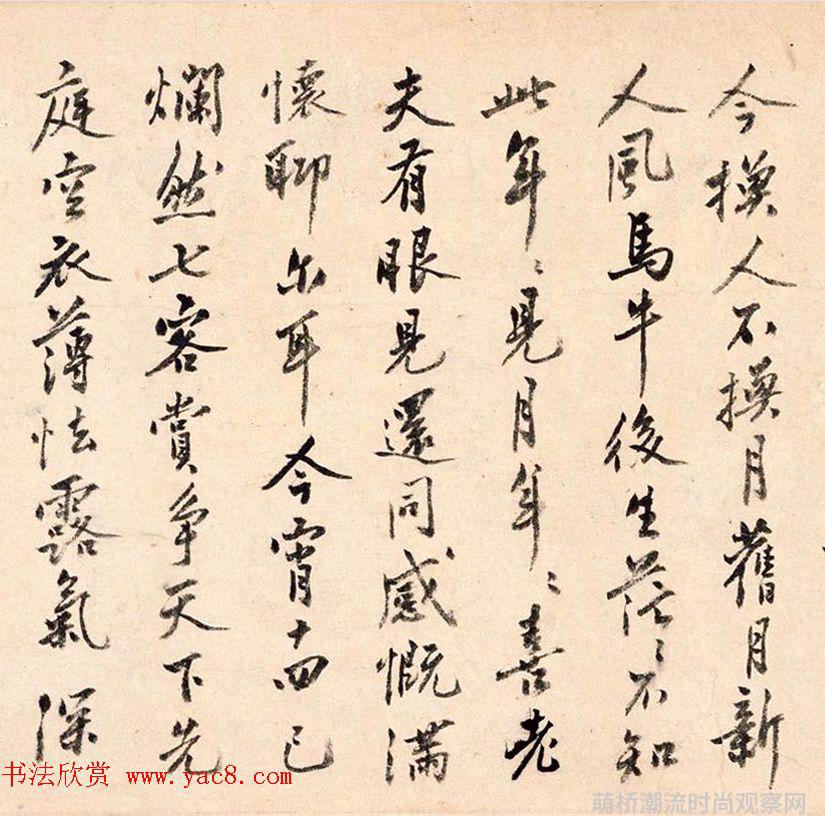 今換人不換月舊月新
人風馬牛後生茫〻不知
此年〻見月年〻喜老
夫有眼見還同感慨滿
懷聊尔耳今宵十四已
爛然七客賞爭天下先
庭空衣薄怯露氣深
书法欣赏 www.yac8.com
萌桥潮流时尚观察网